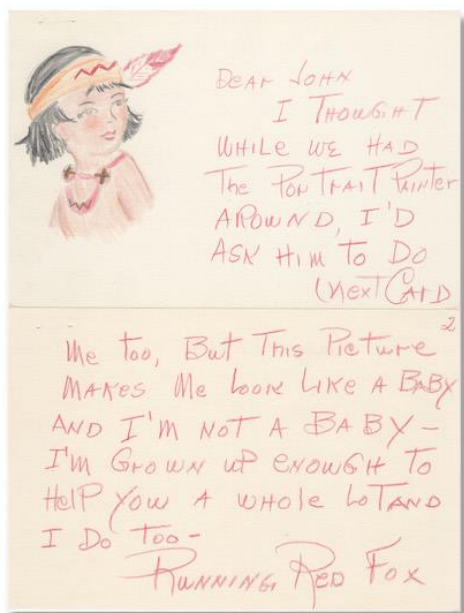 DEAR JOHN
I THOUGHT
WHILE WE HAD
The PORTRAIT PAINTER
AROUND, I'D
ASK HIM TO DO
(NEXT CARD
2
Me too, BUT THIS PICTURE
MAKES Me LOOK LIKE A BABY
AND I'M NOT A BABY –
I'M GROWN UP ENOUGH TO
HELP YOU A WHOLE LOT AND
I DO TOO –
RUNNING RED FOX